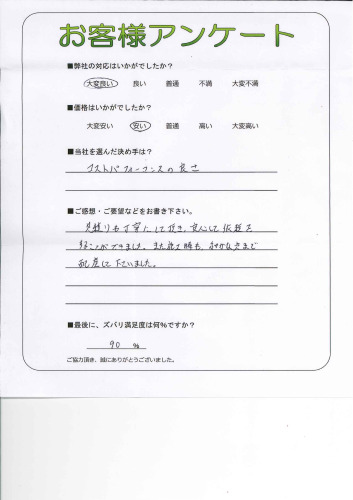 お客様アンケート
■弊社の対応はいかがでしたか？
大変良い 良い 普通 不満 大変不満
■価格はいかがでしたか？
大変安い 安い 普通 高い 大変高い
■当社を選んだ決め手は？
コストパフォーマンスの良さ
■ご感想・ご要望などをお書き下さい。
見積りも丁寧にして頂き、安心して依頼を
することができました。また 細かな点まで
配慮して下さいました。
■最後に、ズバリ満足度は何%ですか？
90 %
ご協力頂き、誠にありがとうございました。